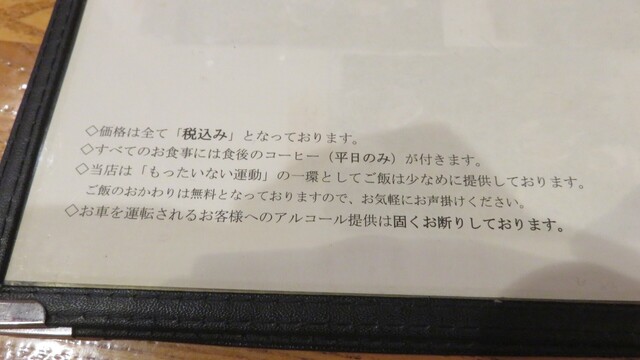 ◇価格は全て「税込み」となっております。
◇すべてのお食事には食後のコーヒー（平日のみ）が付きます。
◇当店は「もったいない運動」の一環としてご飯は少なめに提供しております。
ご飯のおかわりは無料となっておりますので、お気軽にお声掛けください。
◇お車を運転されるお客様へのアルコール提供は固くお断りしております。